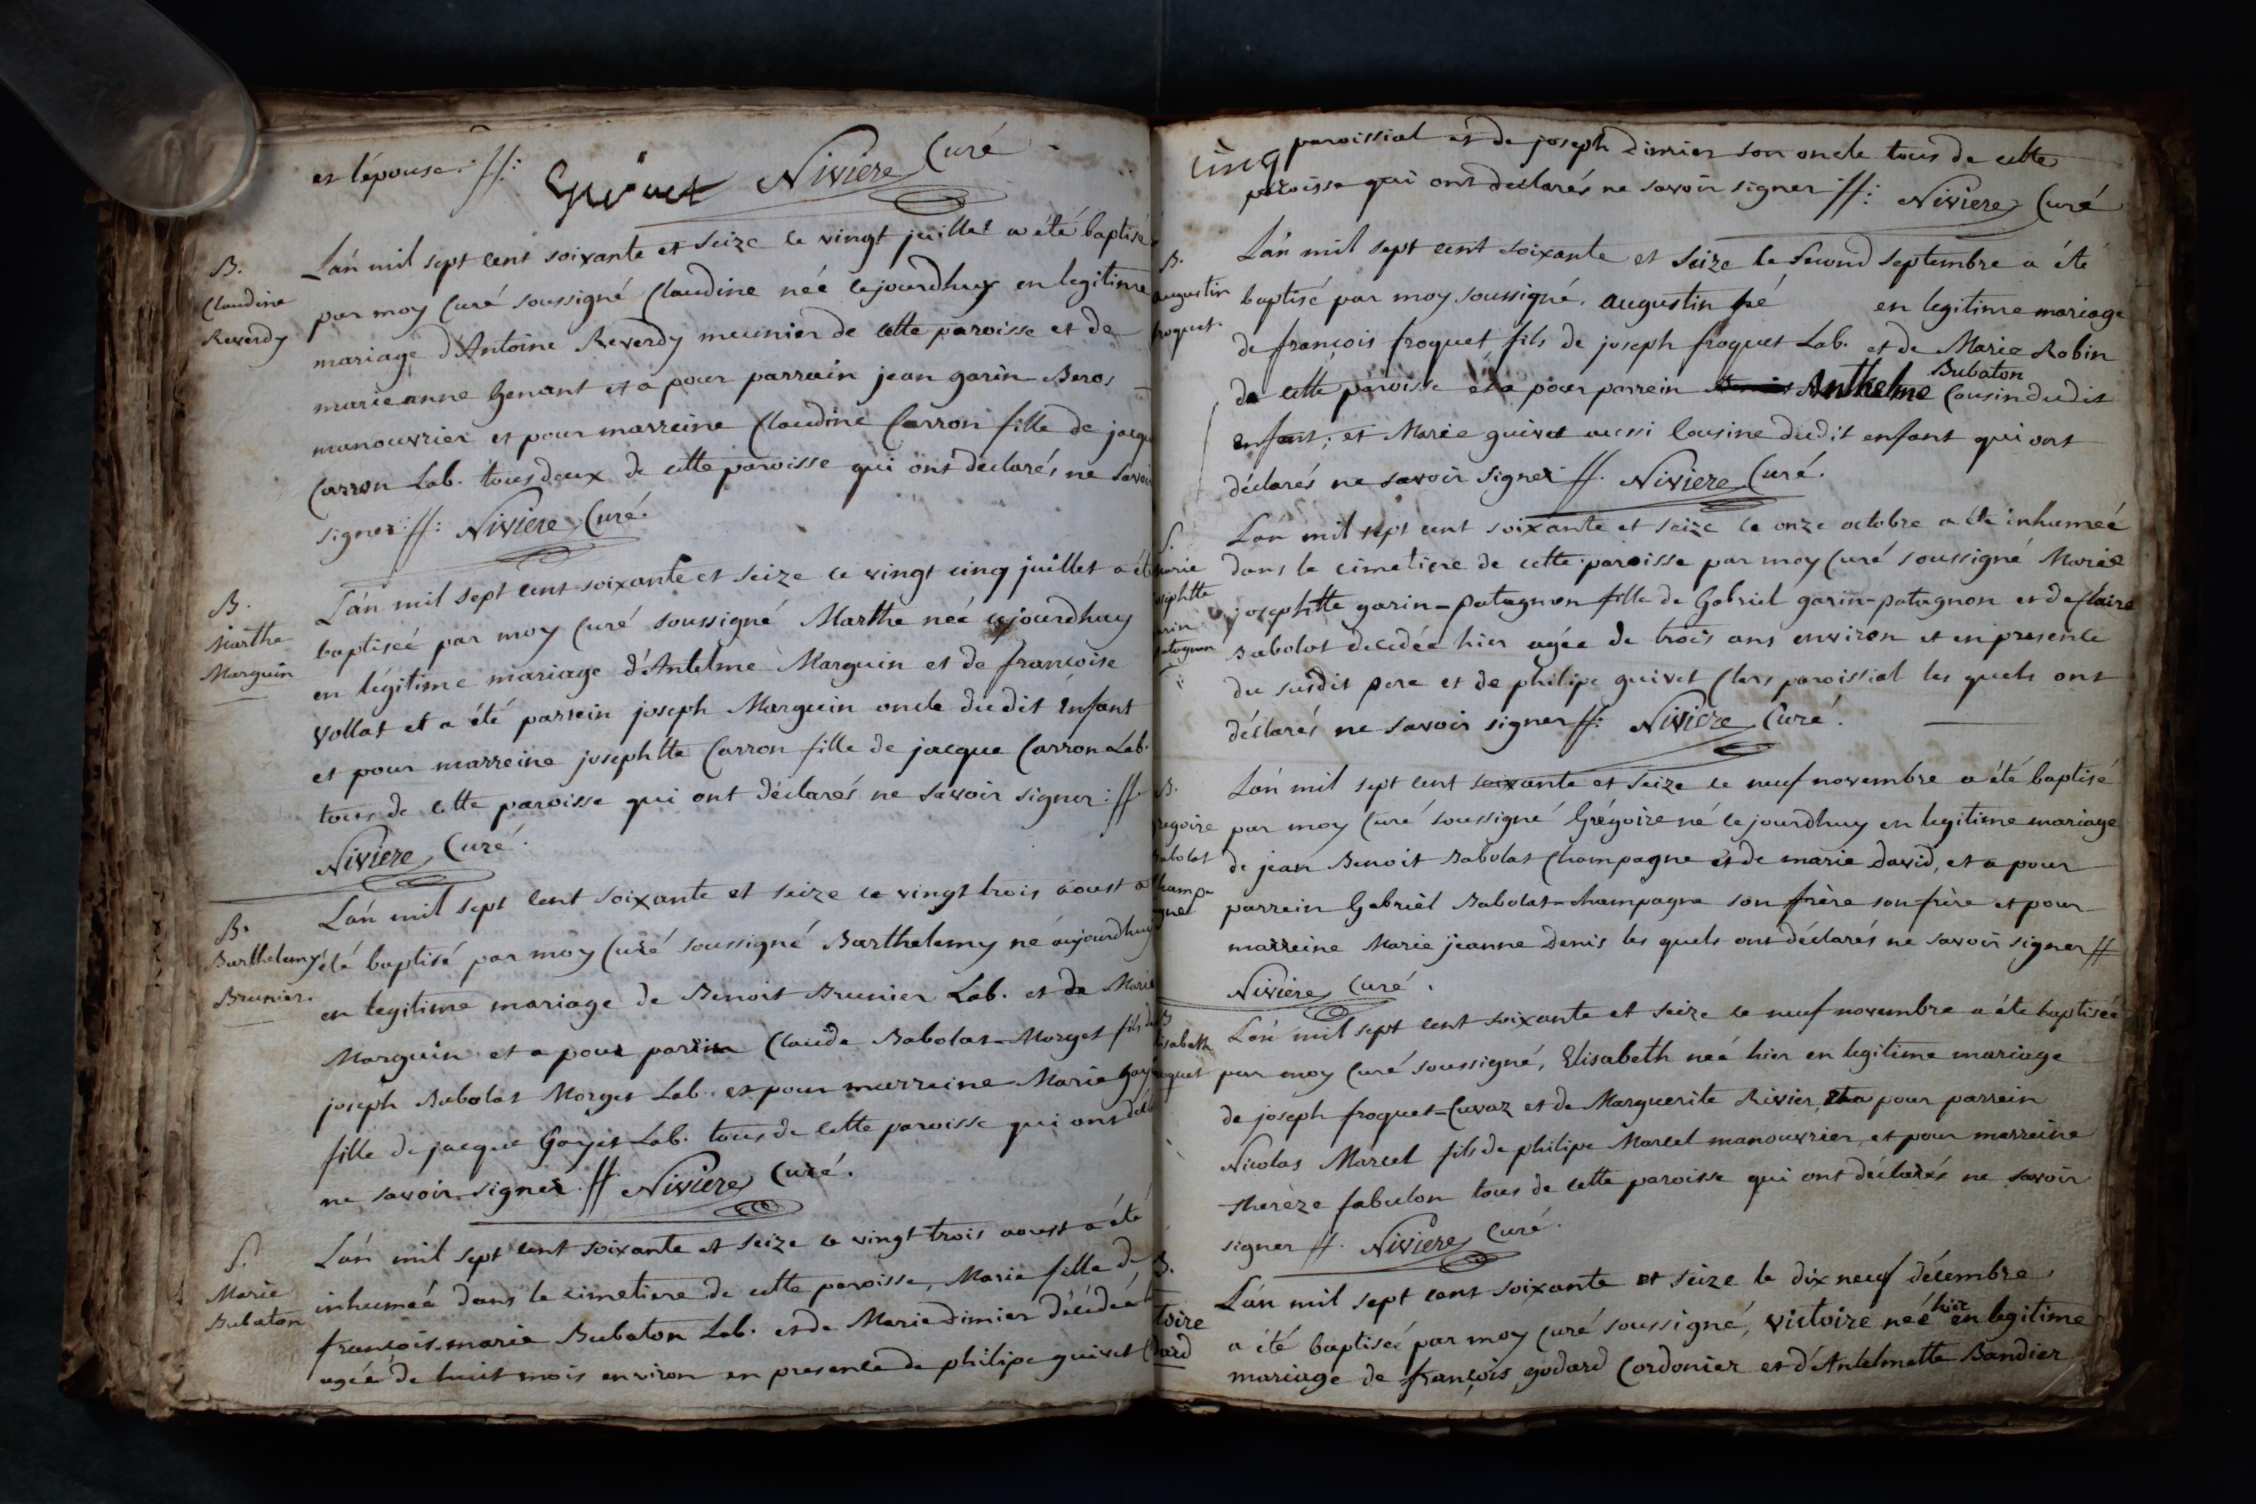 et l'épouse. //:
Guivet Niviere Curé
B.
Claudine
Reverdy
L'an mil sept cent soixante et seize le vingt juillet a été baptisé
par moy Curé soussigné Claudine née cejourdhuy en legitime
mariage d'Antoine Reverdy meunier de cette paroisse et de
marieanne Genant et a pour parrain jean garin Beros
manouvrier et pour marreine Claudine Carron fille de jacque
Carron Lab. tous deux de cette paroisse qui ont déclarés ne savoir
signer //: Niviere Curé.
B.
Marthe
Marguin
L'an mil sept cent soixante et seize ce vingt cinq juillet a été
baptiseé par moy Curé soussigné Marthe neé cejourdhuy
en légitime mariage d'Antelme Marguin et de francoise
Vollat et a été parrein joseph Marguin oncle dudit Enfant
et pour marreine josephtte Carron fille de jacque Carron Lab.
tous de cette paroisse qui ont déclarés ne savoir signer: //
Niviere Curé.
B.
Barthelemy
Brunier.
L'an mil sept cent soixante et seize ce vingt trois aoust a
été baptisé par moy Curé soussigné Barthelemy né aujourdhuy
en legitime mariage de Benoit Brunier Lab. et de Marie
Marguin et a pour parrin Claude Babolat-Morget fils de
joseph Babolat Morget Lab. et pour marreine Marie Gay
fille de jacque Gayet Lab. tous de cette paroisse qui ont décla
ne savoir signer. // Niviere Curé.
S.
Marie
Bubaton
L'an mil sept cent soixante et seize ce vingt trois aoust a été
inhumeé dans le cimetiere de cette paroisse, Marie fille de
francois-marie Bubaton Lab. et de Marie Dimier décédeé
ageé de huit mois environ en presence de philipe guivet C
cinq
paroissial et de joseph Dimier son oncle tous de cette
paroisse qui ont declarés ne savoir signer //: Niviere Curé
B.
augustin
froquet.
L'an mil sept cent soixante et seize le second septembre a été
baptisé par moy soussigné. augustin né en legitime mariage
de françois froquet fils de joseph froquet Lab. et de Marie Robin
Bubaton
de cette paroisse et a pour parrein Anthelme Cousin dudit
enfant; et Marie guivet aussi Cousine dudit enfant qui ont
déclarés ne savoir signer //. Niviere Curé.
S.
Marie
osephtte
arin
atagnon
L'an mil sept cent soixante et seize ce onze octobre a été inhumeé
dans le cimetiere de cette paroisse par moy Curé soussigné Marie
josephtte garin-patagnon fille de Gabriel garin-patagnon et de Claire
Babolat decedée hier agée de trois ans environ et en presence
du susdit pere et de philipe guivet Clerc paroissial les quels ont
déclarés ne savoir signer //: Niviere Curé.
B.
regoire
abolat
hampa
gne
L'an mil sept cent soixante et seize ce neuf novembre a été baptisé
par moy Curé soussigné Grégoire né ce jourdhuy en legitime mariage
de jean Benoit Babolat Champagne et de marie david, et a pour
parrein Gabriel Babolat-champagne son frère son frère et pour
marreine Marie jeanne Denis les quels ont déclarés ne savoir signer //
Niviere Curé.
B
lisabeth
oquet
L'an mil sept cent soixante et seize ce neuf novembre a éte baptiseé
par moy Curé soussigné, Elisabeth neé hier en legitime mariage
de joseph froquet-Cuvaz et de Marguerite Rivier, et a pour parrein
Nicolas Marcel fils de philipe Marcel manouvrier, et pour marreine
therèze fabulon tous de cette paroisse qui ont déclarés ne savoir
signer //. Niviere Curé.
B.
toire
dard
L'an mil sept cent soixante et seize le dix neuf décembre
hier
a été baptiseé par moy curé soussigné, victoire neé en legitime
mariage de françois godard Cordonier et d'Antelmette Bandier